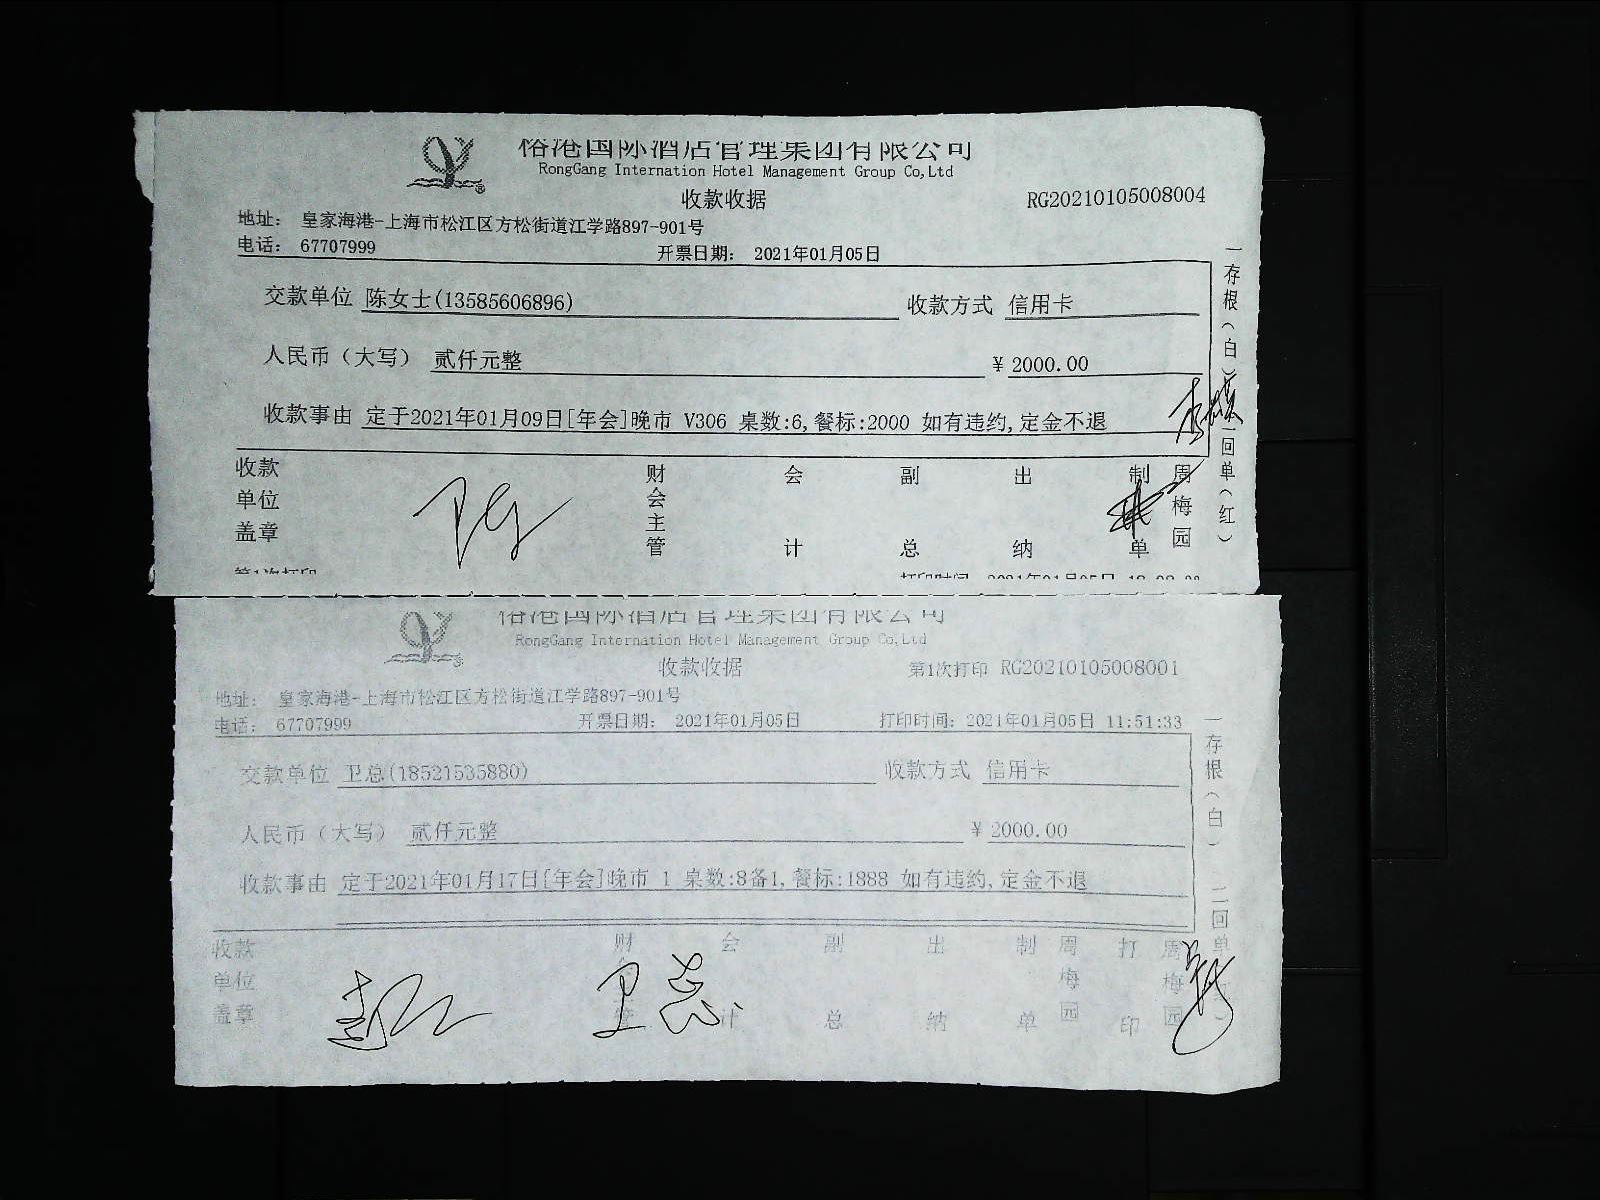 榕港国际酒店管理集团有限公司
RongGang Internation Hotel Management Group Co,Ltd
收款收据 RG20210105008004
地址： 皇家海港-上海市松江区方松街道江学路897-901号
电话： 67707999 开票日期： 2021年01月05日
交款单位 陈女士(13585606896) 收款方式 信用卡
人民币（大写） 贰仟元整 ¥ 2000.00
收款事由 定于2021年01月09日[年会]晚市 V306 桌数:6,餐标:2000 如有违约,定金不退
收款单位盖章 财会主管 会计 副总 出纳 制单 周梅园
一存根（白）二回单（红）
第1次打印 打印时间 2021年01月05日
榕港国际酒店管理集团有限公司
RongGang Internation Hotel Management Group Co,Ltd
收款收据 第1次打印 RG20210105008001
地址： 皇家海港-上海市松江区方松街道江学路897-901号
电话： 67707999 开票日期： 2021年01月05日 打印时间：2021年01月05日 11:51:33
交款单位 卫总(18521535880) 收款方式 信用卡
人民币（大写） 贰仟元整 ¥ 2000.00
收款事由 定于2021年01月17日[年会]晚市 1 桌数:8备1,餐标:1888 如有违约,定金不退
收款单位盖章 财会主管 会计 副总 出纳 制单 周梅园 打印 周梅园
一存根（白） 二回单